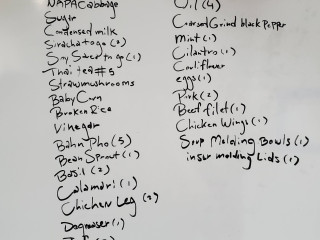 NAPA Cabbage
Sugar
Condensed milk
Sirachatogo (2)
Soy Sauce to go (1)
Thai tea #5
Strawmushrooms
Baby Corn
Broken Rice
Vinegar
Bahn Pho (5)
Bean Sprout (1)
Basil (2)
Calamari (1)
Chicken Leg (2)
Oil (4)
Coarsed Grind black Pepper
Mint (1)
Cilantro (1)
Couliflower
eggs (1)
Pork (2)
Beef filet (1)
Chicken Wings (1)
Soup Molding Bowls (1)
molding Lids (1)